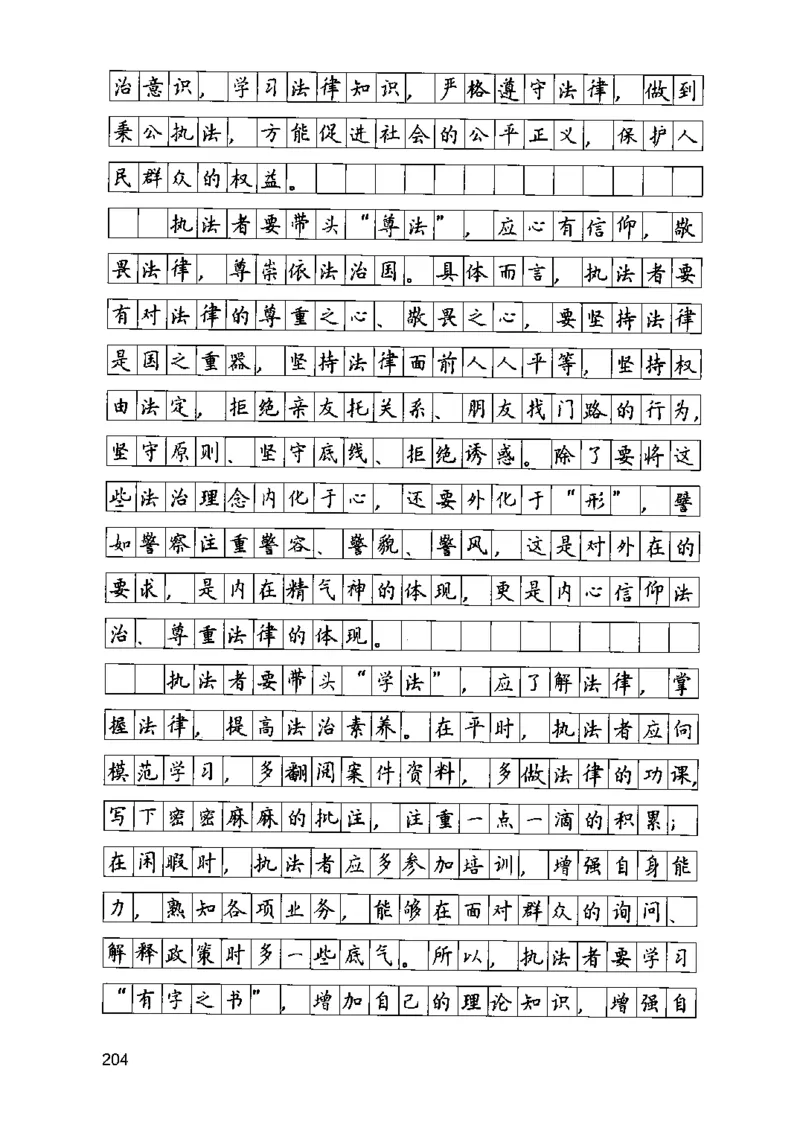 治意识，学习法律知识，严格遵守法律，做到
秉公执法，方能促进社会的公平正义，保护人
民群众的权益。
执法者要带头“尊法”，应心有信仰，敬
畏法律，尊崇依法治国。具体而言，执法者要
有对法律的尊重之心、敬畏之心，要坚持法律
是国之重器，坚持法律面前人人平等，坚持权
由法定，拒绝亲友托关系、朋友找门路的行为，
坚守原则、坚守底线、拒绝诱惑。除了要将这
些法治理念内化于心，还要外化于“形”，譬
如警察注重警容、警貌、警风，这是对外在的
要求，是内在精气神的体现，更是内心信仰法
治、尊重法律的体现。
执法者要带头“学法”，应了解法律，掌
握法律，提高法治素养。在平时，执法者应向
模范学习，多翻阅案件资料，多做法律的功课，
写下密密麻麻的批注，注重一点一滴的积累；
在闲暇时，执法者应多参加培训，增强自身能
力，熟知各项业务，能够在面对群众的询问、
解释政策时多一些底气。所以，执法者要学习
“有字之书”，增加自己的理论知识，增强自
204